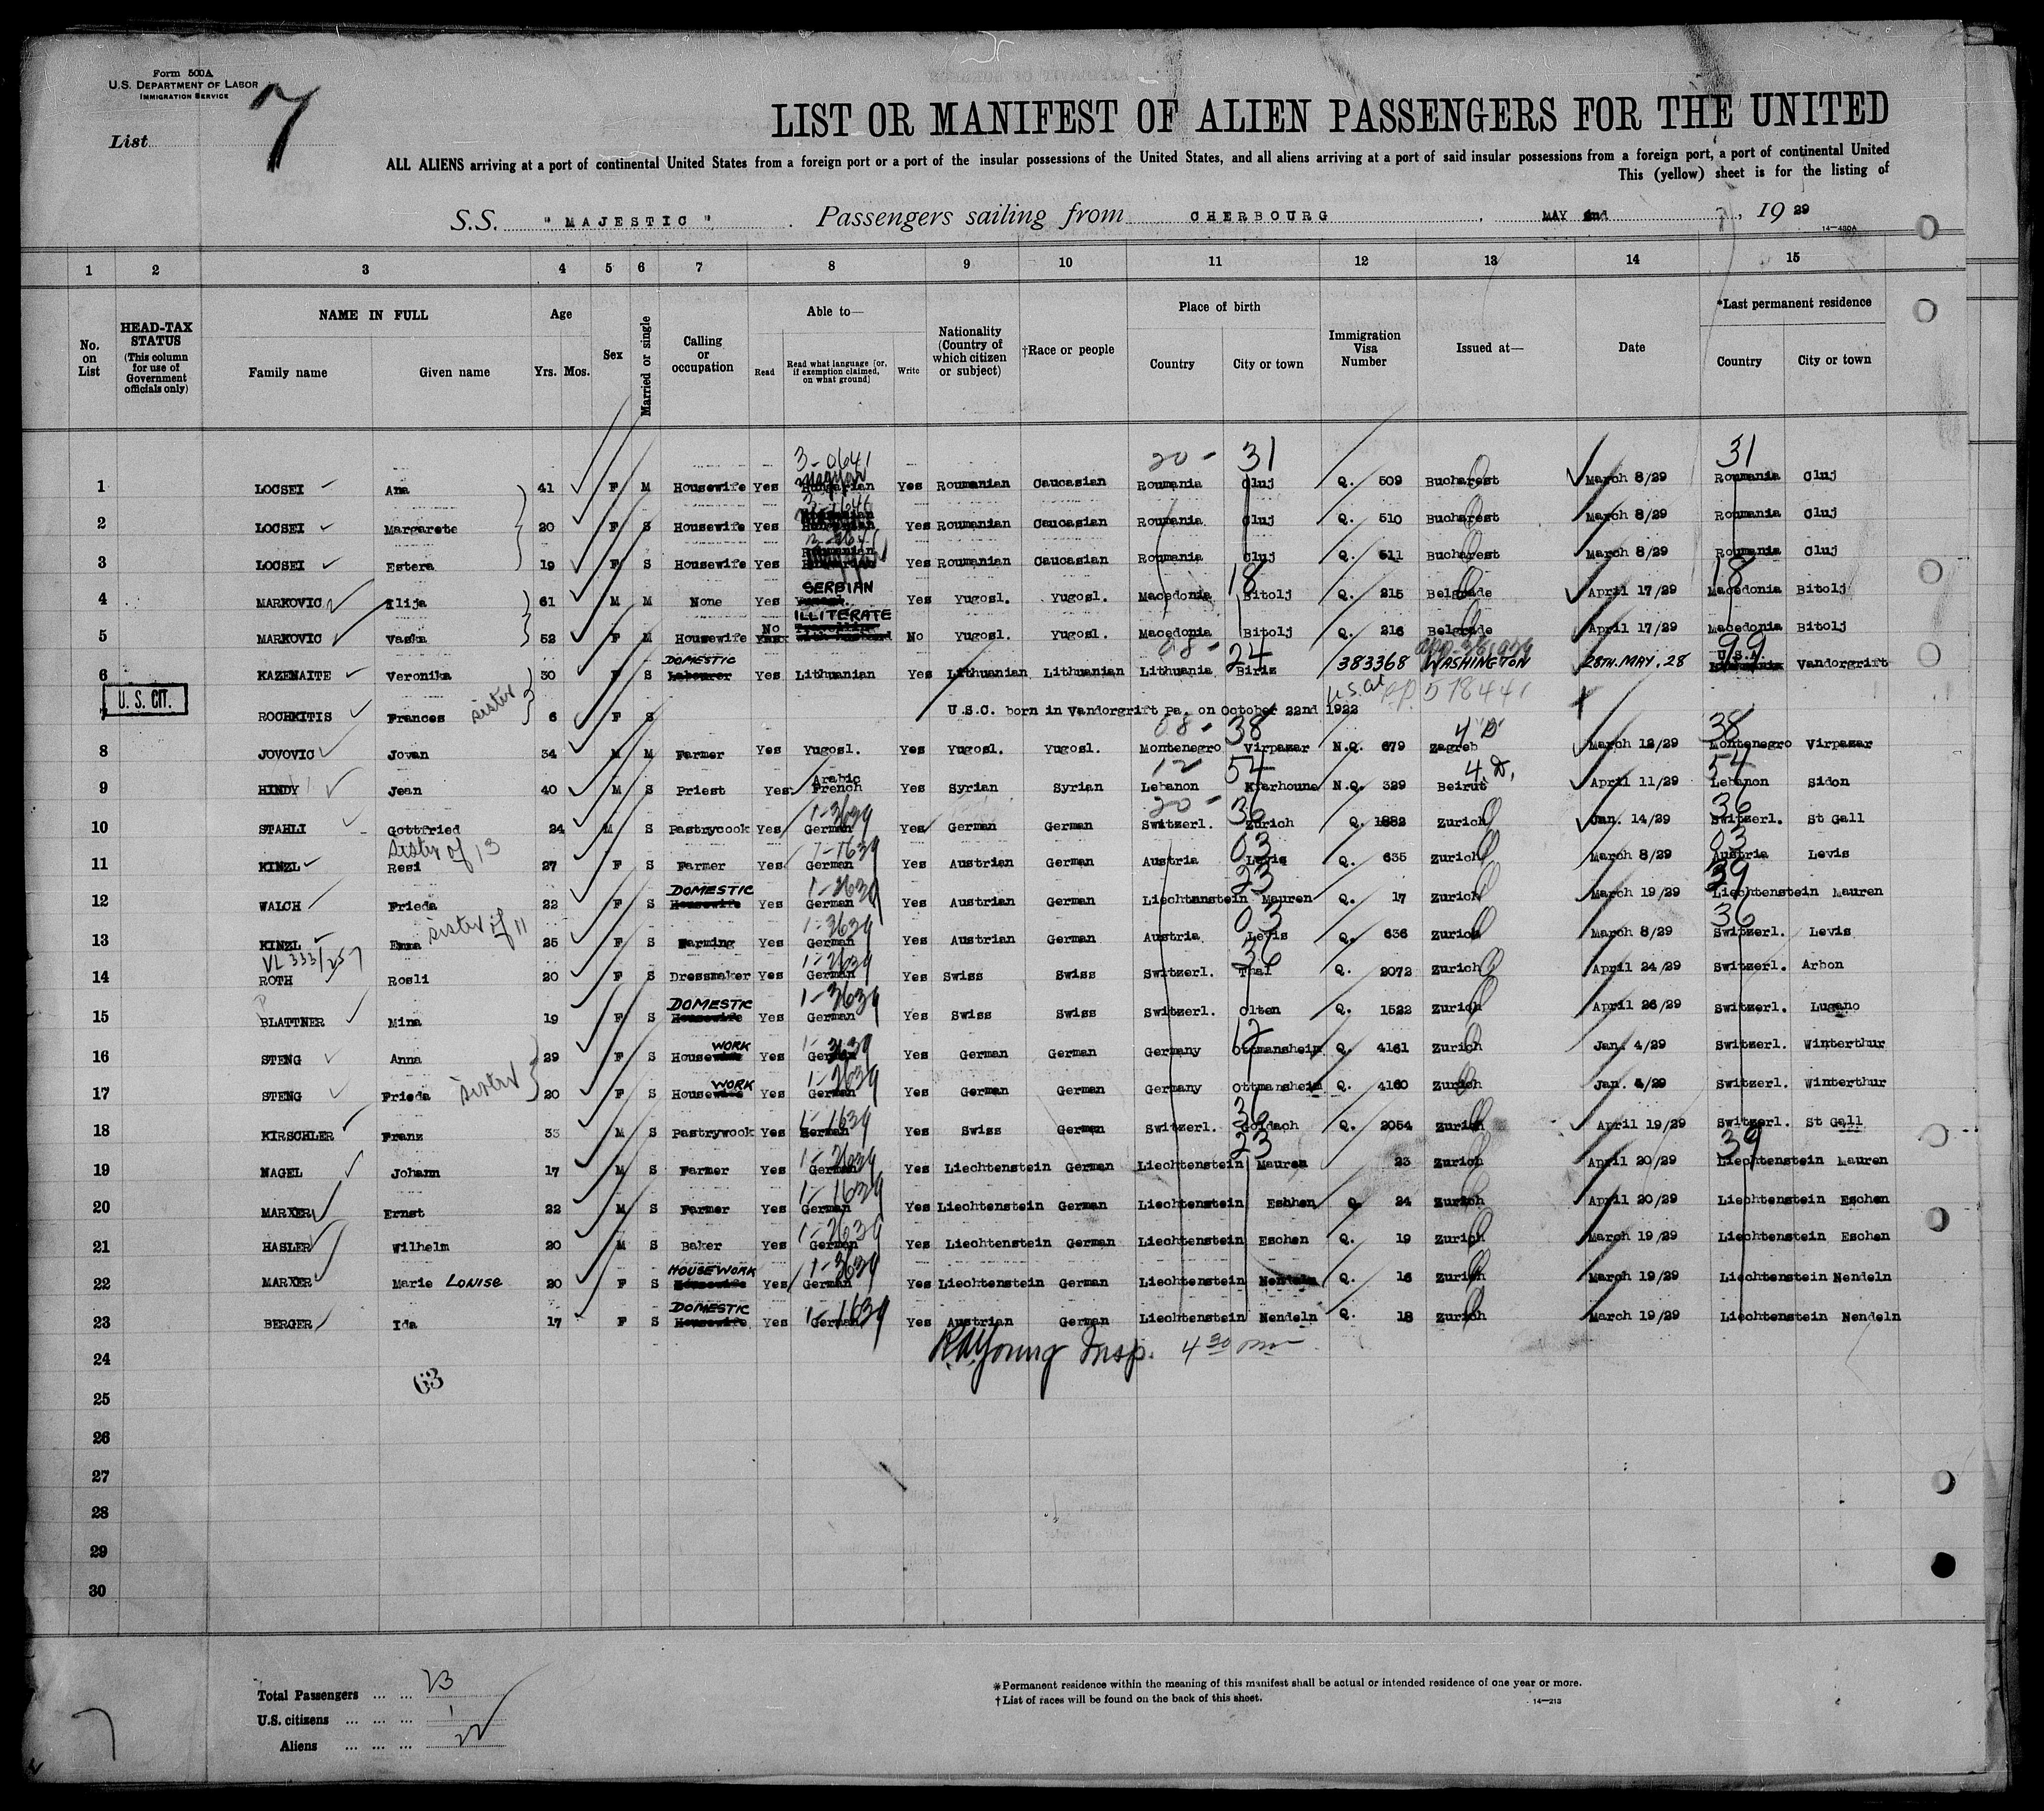 Form 500A
U.S. DEPARTMENT OF LABOR
IMMIGRATION SERVICE
List 7
LIST OR MANIFEST OF ALIEN PASSENGERS FOR THE UNITED
ALL ALIENS arriving at a port of continental United States from a foreign port or a port of the insular possessions of the United States, and all aliens arriving at a port of said insular possessions from a foreign port, a port of continental United
This (yellow) sheet is for the listing of
S.S. "MAJESTIC". Passengers sailing from CHERBOURG, MAY 2nd, 1929
14—430A
1 2 3 4 5 6 7 8 9 10 11 12 13 14 15
No. on List
HEAD-TAX STATUS (This column for use of Government officials only)
NAME IN FULL Family name Given name
Age Yrs. Mos.
Sex
Married or single
Calling or occupation
Able to— Read Read what language (or, if exemption claimed, on what ground) Write
Nationality (Country of which citizen or subject)
†Race or people
Place of birth Country City or town
Immigration Visa Number
Issued at—
Date
*Last permanent residence Country City or town
3-0641 20- 31 31
1 LOCSEI Ana 41 F M Housewife Yes Magyar Yes Roumanian Caucasian Roumania Cluj Q. 509 Bucharest March 8/29 Roumania Cluj
2 LOCSEI Margarete 20 F S Housewife Yes Yes Roumanian Caucasian Roumania Cluj Q. 510 Bucharest March 8/29 Roumania Cluj
3 LOCSEI Estera 19 F S Housewife Yes Roumanian Yes Roumanian Caucasian Roumania Cluj Q. 511 Bucharest March 8/29 Roumania Cluj
18 18
4 MARKOVIC Ilija 61 M M None Yes SERBIAN Yes Yugosl. Yugosl. Macedonia Bitolj Q. 215 Belgrade April 17/29 Macedonia Bitolj
5 MARKOVIC Vaska 52 F M Housewife No ILLITERATE No Yugosl. Yugosl. Macedonia Bitolj Q. 216 Belgrade April 17/29 Macedonia Bitolj
08- 24 99
6 KAZENAITE Veronika 30 F S DOMESTIC Yes Lithuanian Yes Lithuanian Lithuanian Lithuania Biriz 383368 WASHINGTON 28TH.MAY.28 U.S.A. Vandorgrift
U.S. CIT.
7 ROCHKITIS Frances sister 6 F S U.S.C. born in Vandorgrift Pa. on October 22nd 1922 U.S. Cit P.P. 578441
08- 38 4 D 38
8 JOVOVIC Jovan 34 M M Farmer Yes Yugosl. Yes Yugosl. Yugosl. Montenegro Virpazar N.Q. 679 Zagreb March 12/29 Montenegro Virpazar
12 54 4 D, 54
9 HINDY Jean 40 M S Priest Yes Arabic French Yes Syrian Syrian Lebanon Kfarhoune N.Q. 329 Beirut April 11/29 Lebanon Sidon
1-3639 20- 36 36
10 STAHLI Gottfried 24 M S Pastrycook Yes German Yes German German Switzerl. Zurich Q. 1882 Zurich Jan. 14/29 Switzerl. St Gall
sister of 13 1-1639 03 03
11 KINZL Resi 27 F S Farmer Yes German Yes Austrian German Austria Levis Q. 635 Zurich March 8/29 Austria Levis
1-2639 23 39
12 WALCH Frieda 22 F S DOMESTIC Housewife Yes German Yes Austrian German Liechtenstein Mauren Q. 17 Zurich March 19/29 Liechtenstein Mauren
1-3639 03 36
13 KINZL Emma sister of 11 25 F S Farming Yes German Yes Austrian German Austria Levis Q. 636 Zurich March 8/29 Switzerl. Levis
VL 333/257 1-2639 36
14 ROTH Rosli 20 F S Dressmaker Yes German Yes Swiss Swiss Switzerl. Thal Q. 2072 Zurich April 24/29 Switzerl. Arbon
1-3639
15 BLATTNER Mina 19 F S DOMESTIC Housewife Yes German Yes Swiss Swiss Switzerl. Olten Q. 1522 Zurich April 26/29 Switzerl. Lugano
1-3639 12
16 STENG Anna 29 F S HouseWORK Yes German Yes German German Germany Ottmansheim Q. 4161 Zurich Jan. 4/29 Switzerl. Winterthur
1-2639
17 STENG Frieda sister 20 F S HouseWORK Yes German Yes German German Germany Ottmansheim Q. 4160 Zurich Jan. 4/29 Switzerl. Winterthur
1-1639 36
18 KIRSCHLER Franz 33 M S Pastrywook Yes German Yes Swiss German Switzerl. Goldach Q. 2054 Zurich April 19/29 Switzerl. St Gall
1-2639 23 39
19 NAGEL Johann 17 M S Farmer Yes German Yes Liechtenstein German Liechtenstein Mauren 23 Zurich April 20/29 Liechtenstein Mauren
1-1639
20 MARXER Ernst 22 M S Farmer Yes German Yes Liechtenstein German Liechtenstein Eshhen Q. 24 Zurich April 20/29 Liechtenstein Eschen
1-2639
21 HASLER Wilhelm 20 M S Baker Yes German Yes Liechtenstein German Liechtenstein Eschen Q. 19 Zurich March 19/29 Liechtenstein Eschen
1-3639
22 MARXER Marie LOUISE 20 F S HOUSEWORK Yes German Yes Liechtenstein German Liechtenstein Nendeln Q. 16 Zurich March 19/29 Liechtenstein Nendeln
1-1639
23 BERGER Ida 17 F S DOMESTIC Housewife Yes German Yes Austrian German Liechtenstein Nendeln Q. 18 Zurich March 19/29 Liechtenstein Nendeln
24 R.W. Young Insp. 4 30 pm
63
25
26
27
28
29
30
Total Passengers ... ... 23
U.S. citizens ... ... ... 1
Aliens ... ... ... 22
*Permanent residence within the meaning of this manifest shall be actual or intended residence of one year or more.
†List of races will be found on the back of this sheet.
14—213
7